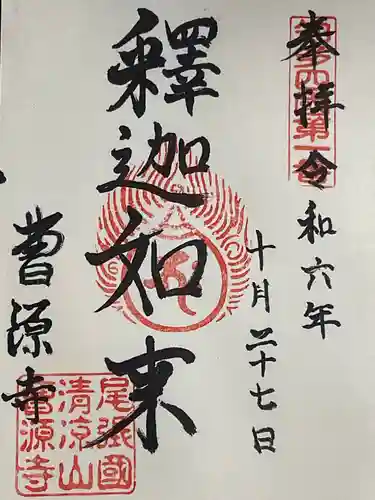 奉拝
令和六年
十月二十七日
釋迦如来
曹源寺
尾張國
清涼山
曹源寺